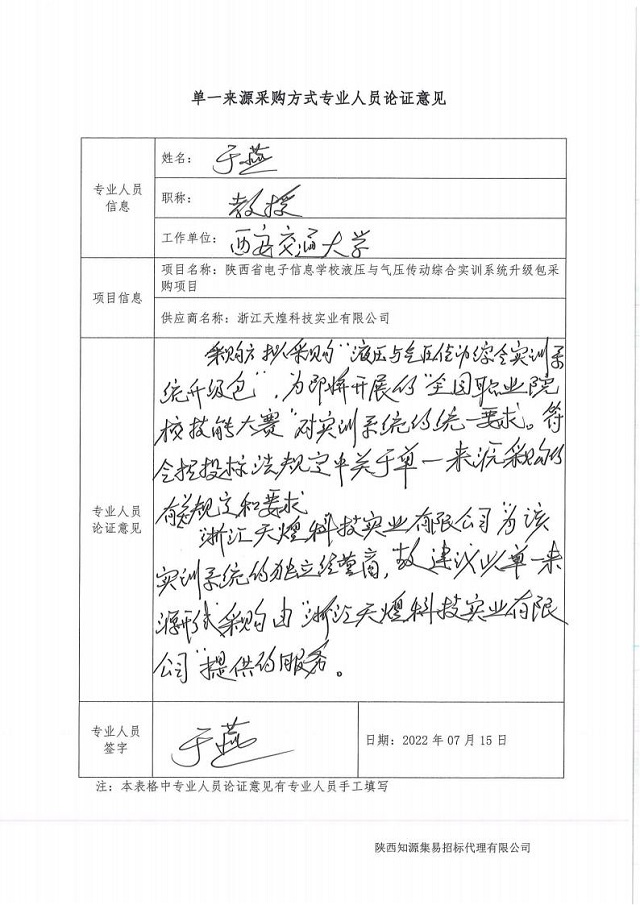 单一来源采购方式专业人员论证意见
专业人员
信息
姓名：于燕
职称：教授
工作单位：西安交通大学
项目信息
项目名称：陕西省电子信息学校液压与气压传动综合实训系统升级包采
购项目
供应商名称：浙江天煌科技实业有限公司
专业人员
论证意见
采购方拟采购“液压与气压传动综合实训系
统升级包”，为即将开展的“全国职业院
校技能大赛”对实训系统的统一要求。符
合招投标法规定中关于单一来源采购的
有关规定和要求
“浙江天煌科技实业有限公司”为该
实训系统的独立经营商，故建议以单一来
源形式采购由“浙江天煌科技实业有限
公司”提供的服务。
专业人员
签字
于燕
日期：2022 年 07 月 15 日
注：本表格中专业人员论证意见有专业人员手工填写
陕西知源集易招标代理有限公司